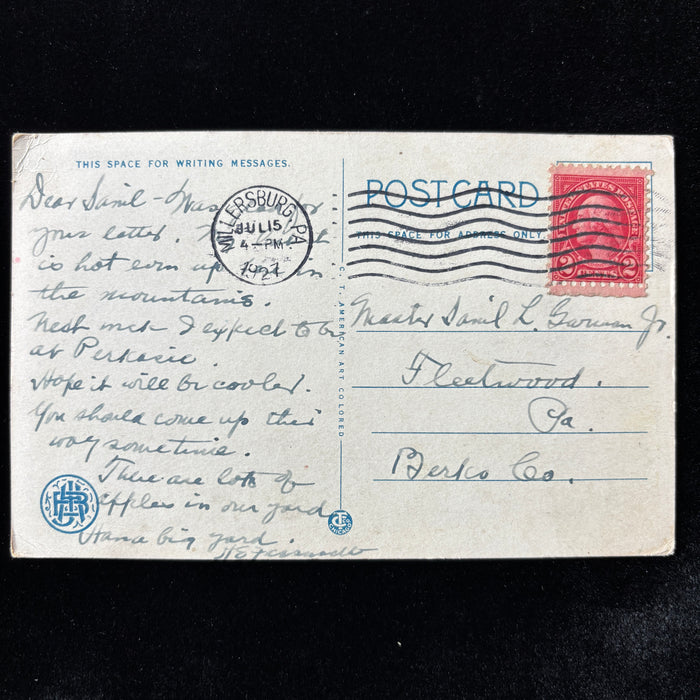 THIS SPACE FOR WRITING MESSAGES.
Dear Danil - Was
your letter.
is hot even up in
the mountains.
Next week I expect to be
at Perkasie.
Hope it will be cooler.
You should come up this
way sometime.
There are lots of
apples in our yard
Have a big yard.
MILLERSBURG, PA.
JUL 15
4-PM
1927
POST CARD
THIS SPACE FOR ADDRESS ONLY
UNITED STATES POSTAGE
2 CENTS 2
Master Danil L. Jr.
Fleetwood.
Pa.
Berks Co.
C. T. AMERICAN ART COLORED
CHICAGO